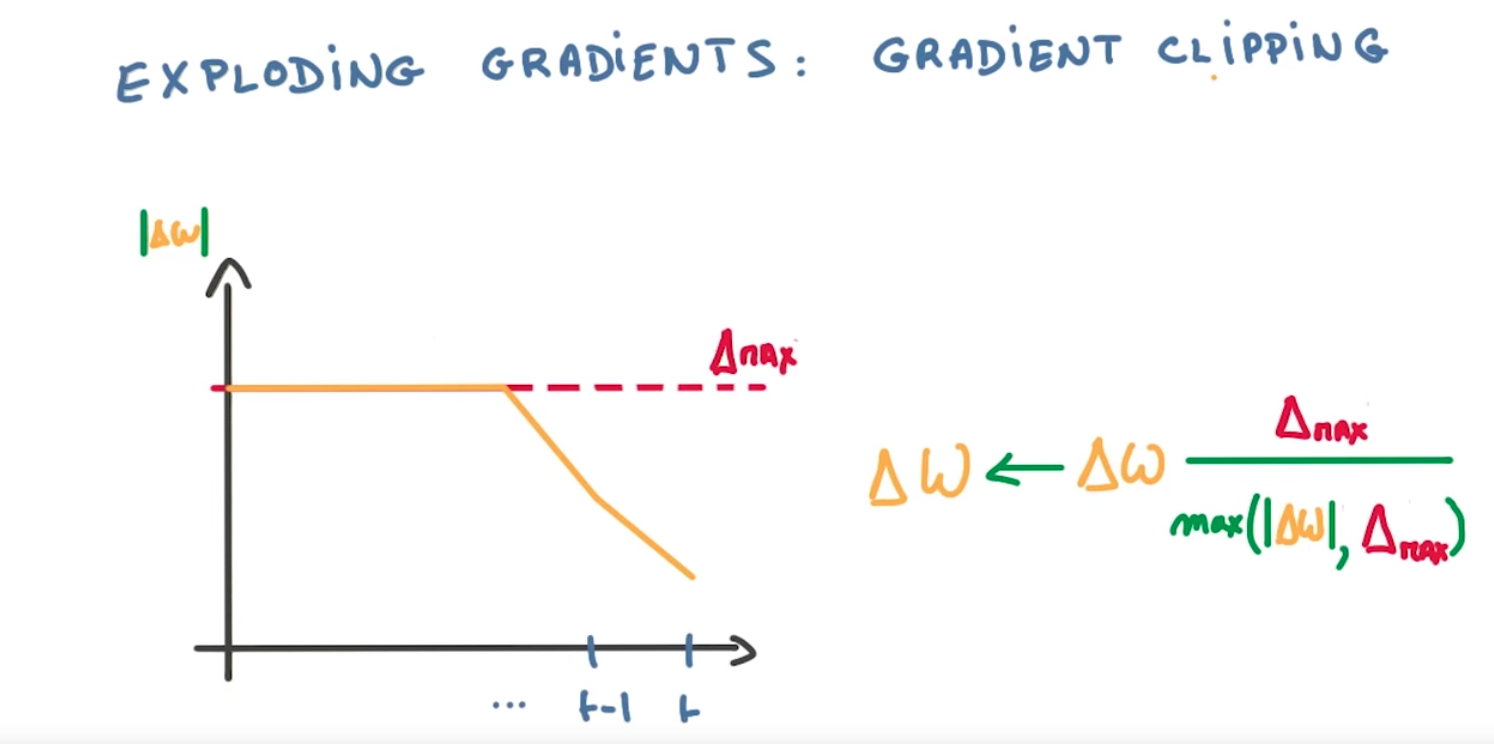 EXPLODING GRADIENTS: GRADIENT CLIPPING
|Δω|
Δmax
ΔW ← Δω Δmax
max(|Δω|, Δmax)
... t-1 t